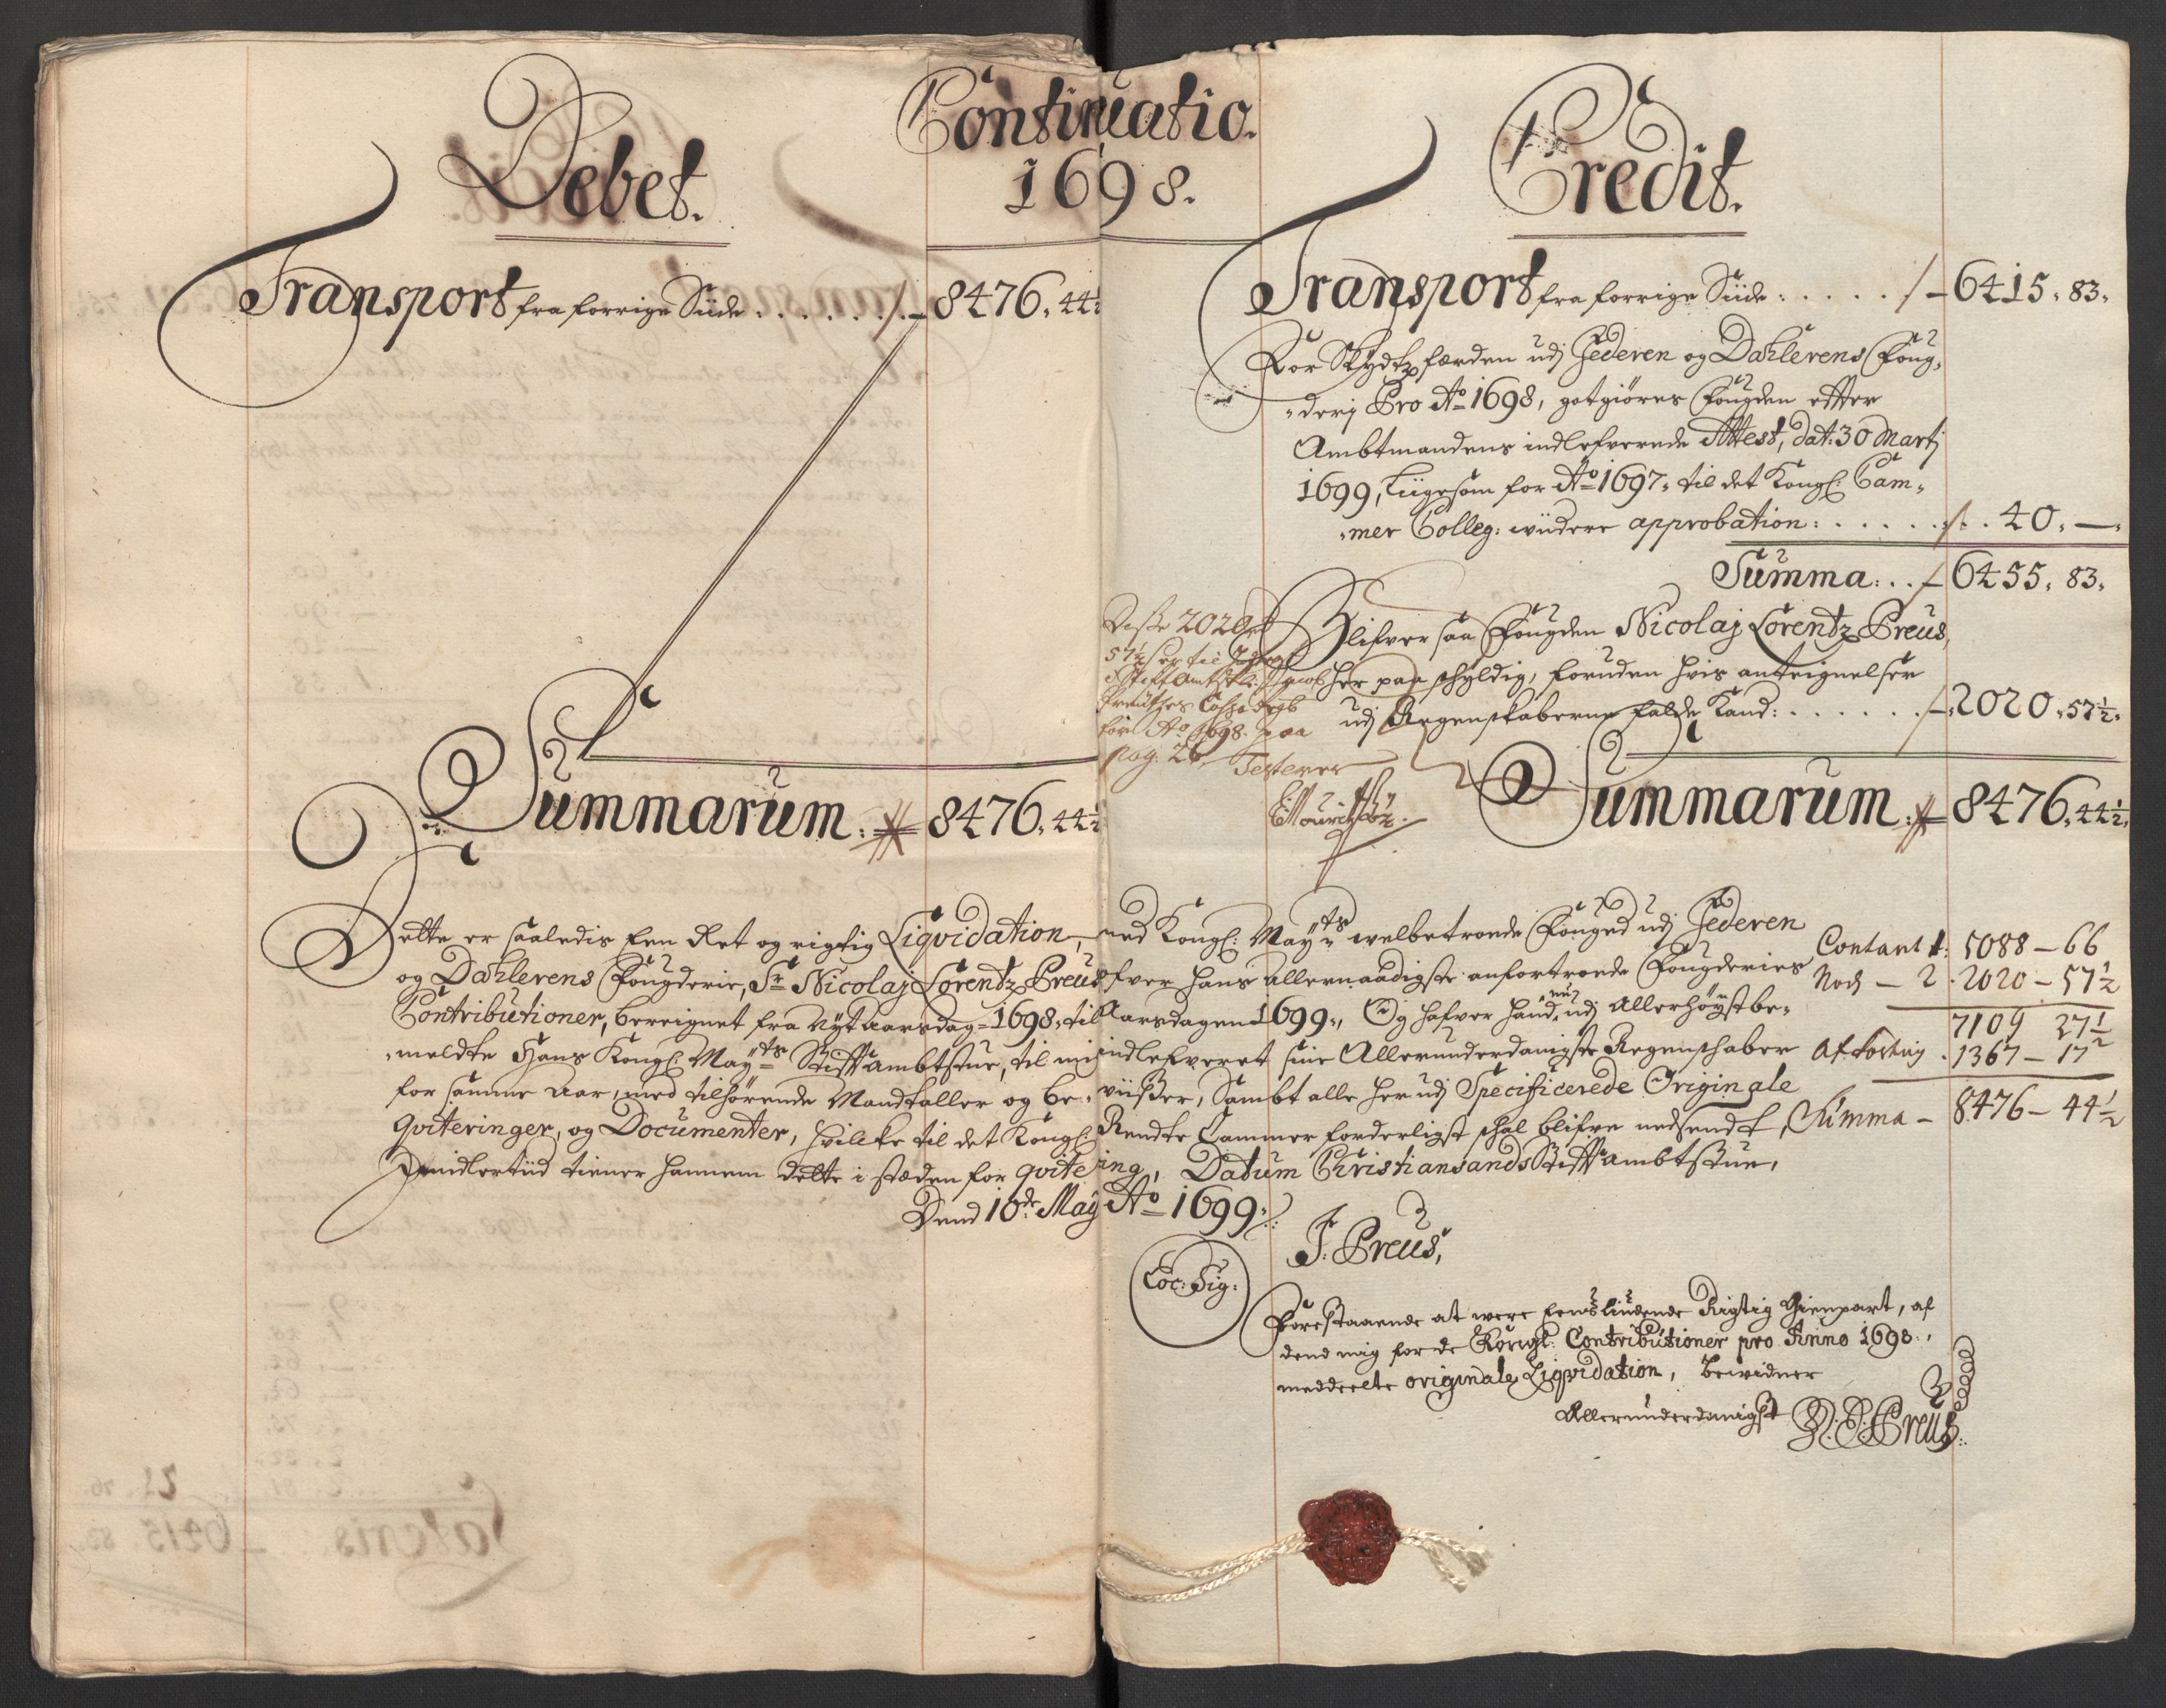 Continuatio.
1698.
Debet.
Transport fra forrige Siide . . . . . . . /. — 8476. 44½
Summarum. 8476. 44½
Credit.
Transport fra forrige Siide : . . . . / — 6415. 83.
For Skydtzfærden udj Jederen og Dahlerens Foug„
„derj Pro Ao 1698, gotgiøres Fougden efter
Ambtmandens indlefverede Attest, dat: 30 Martj
1699, Liigesom for Ao 1697. til det Kongl: Cam„
„mer Colleg: widere approbation : . . . . . /. . 40. —.
Summa: . . — 6455. 83.
Blifver saa Fougden Nicolaj Lorentz Preus,
her paa schyldig, foruden hvis antegnelser
udj Regenskaberne falde Kand: . . . . . . /— 2020. 57½.
Disse 2020
57½
Stiftambtskr: Jacob
Preutzes Cassa
for Ao 1698. paa
pag. 26. Testerer
Summarum. 8476. 44½.
Dette er saaledis Een Ret og rigtig Liqvidation, med Kongl: Mayts welbetroede Fouged udj Jederen
og Dahlerens Fougderie, Sr Nicolaj Lorentz Preus ofver hans allernaadigste anfortroede Fougderies
Contributioner, bereignet fra Nyt Aarsdag 1698. til Aarsdagen 1699., Og hafver hand nu udj Allerhøystbe„
„meldte Hans Kongl: Mayts Stiftambtstue, til mig indlefveret sine Allerunderdanigste Regenschaber
for samme Aar, med tilhørende Mandtaller og be„ viiser, Sambt alle her udj Specificerede Originale
Qviteringer, og Documenter, hvilcke til det Kongl: Rendte Cammer forderligst schal blifve nedsendt,
Imidlertiid tiener hannem dette i stæden for qvitering, Datum Christiansands Stiftambtstue,
Dend 10de May Ao 1699.
Contant 5088 — 66
Noch — 2020 — 57½
7109 27½
Afkortning 1367 — 17
Summa — 8476 — 44½
J. Preus,
Loc: Sig:
Forestaaende at were Eensliudende Rigtig Gienpart, af
dend mig for de Kongl: Contributioner pro Anno 1698.,
meddeelte originale Liqvidation, bewidner
Allerunderdanigst N. L. Preus.